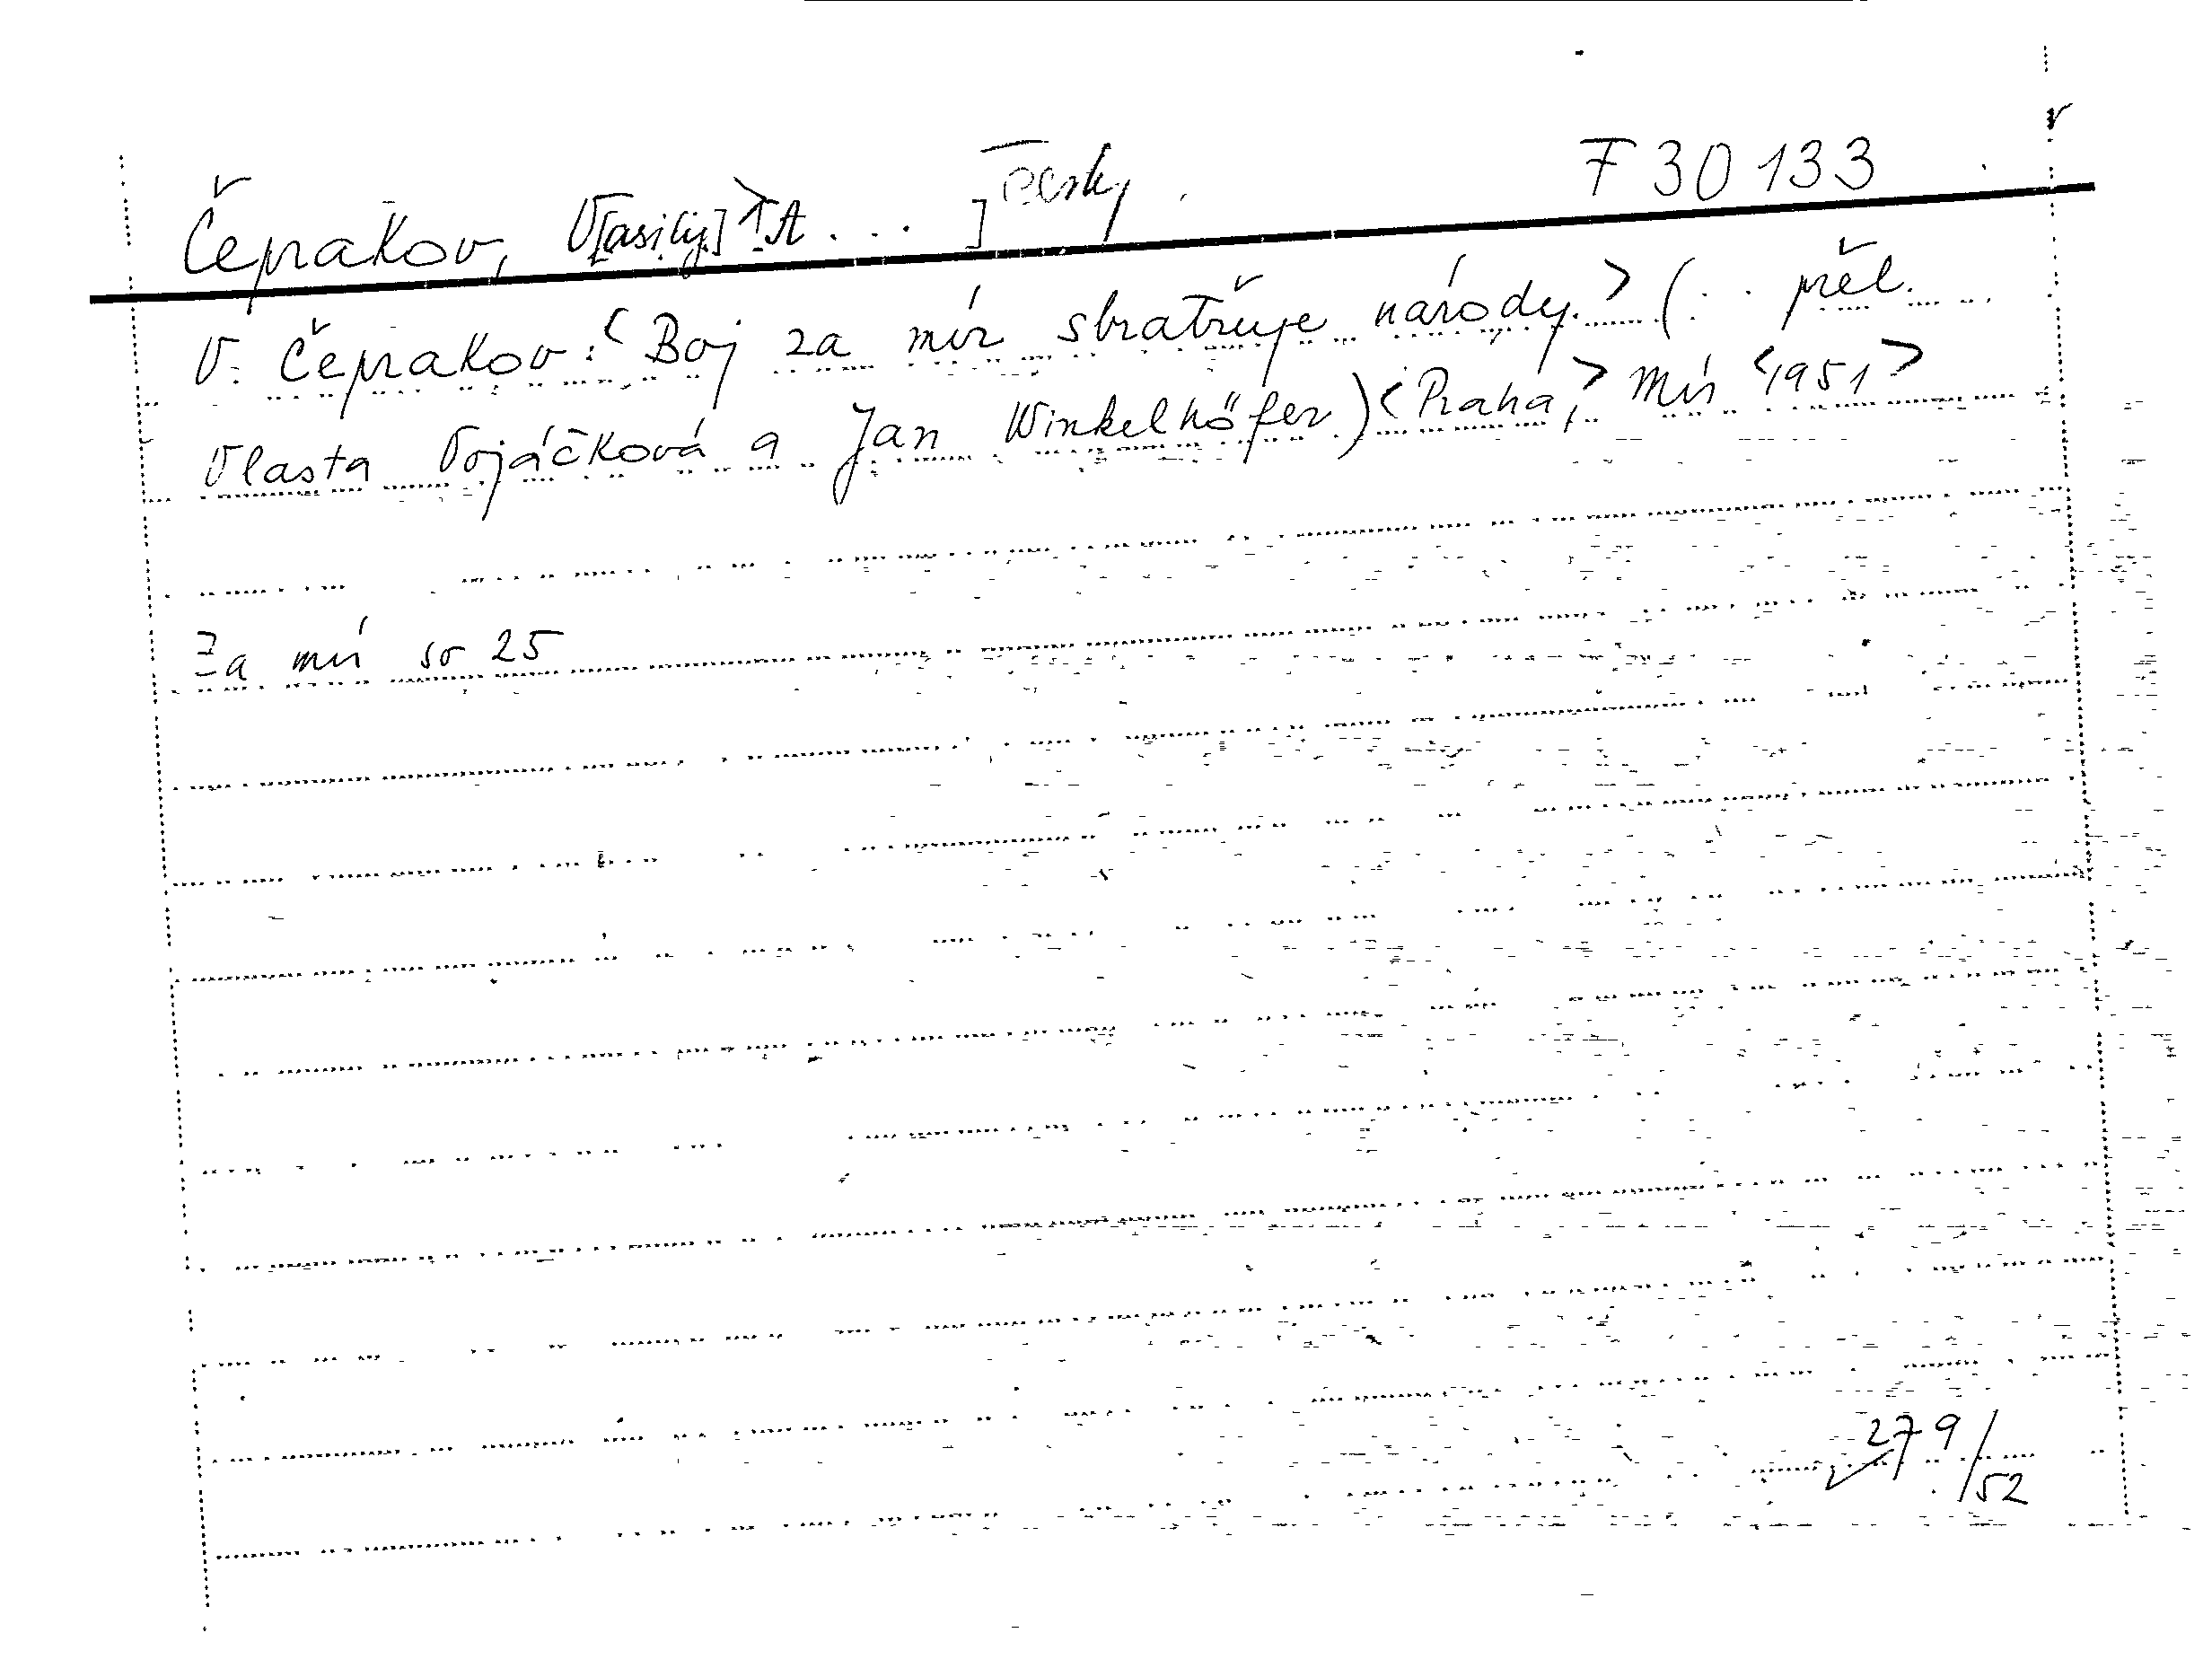 Čeprakov, V[asilij] [A . . . ] česky F 30 133
V. Čeprakov: <Boj za mír sbratřuje národy.> (. . přel.
Vlasta Vojáčková a Jan Winkelhöfer.) <Praha,> Mír <1951>
Za mír sv 25
279/52